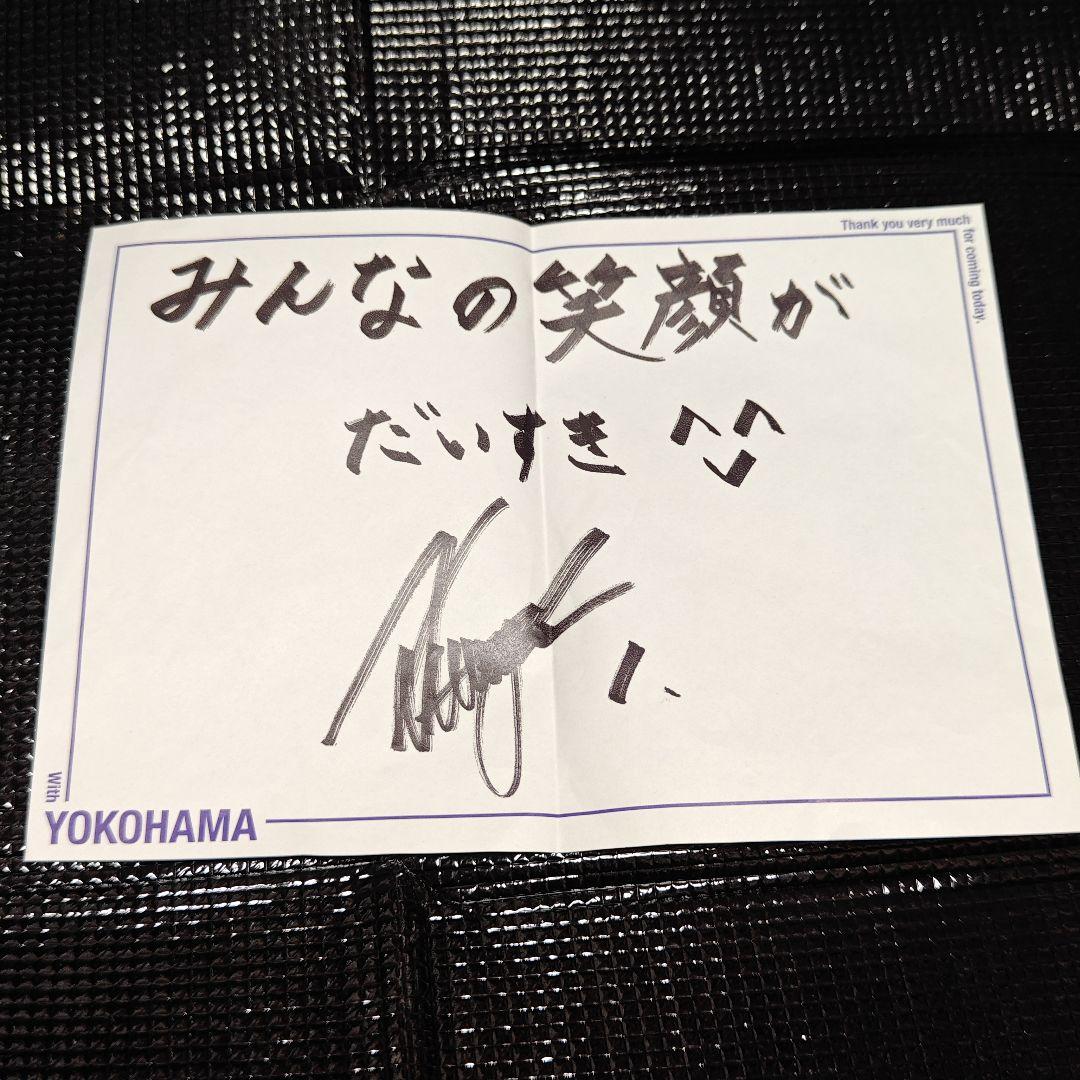 Thank you very much
for coming today.
みんなの笑顔が
だいすき ^^
with
YOKOHAMA